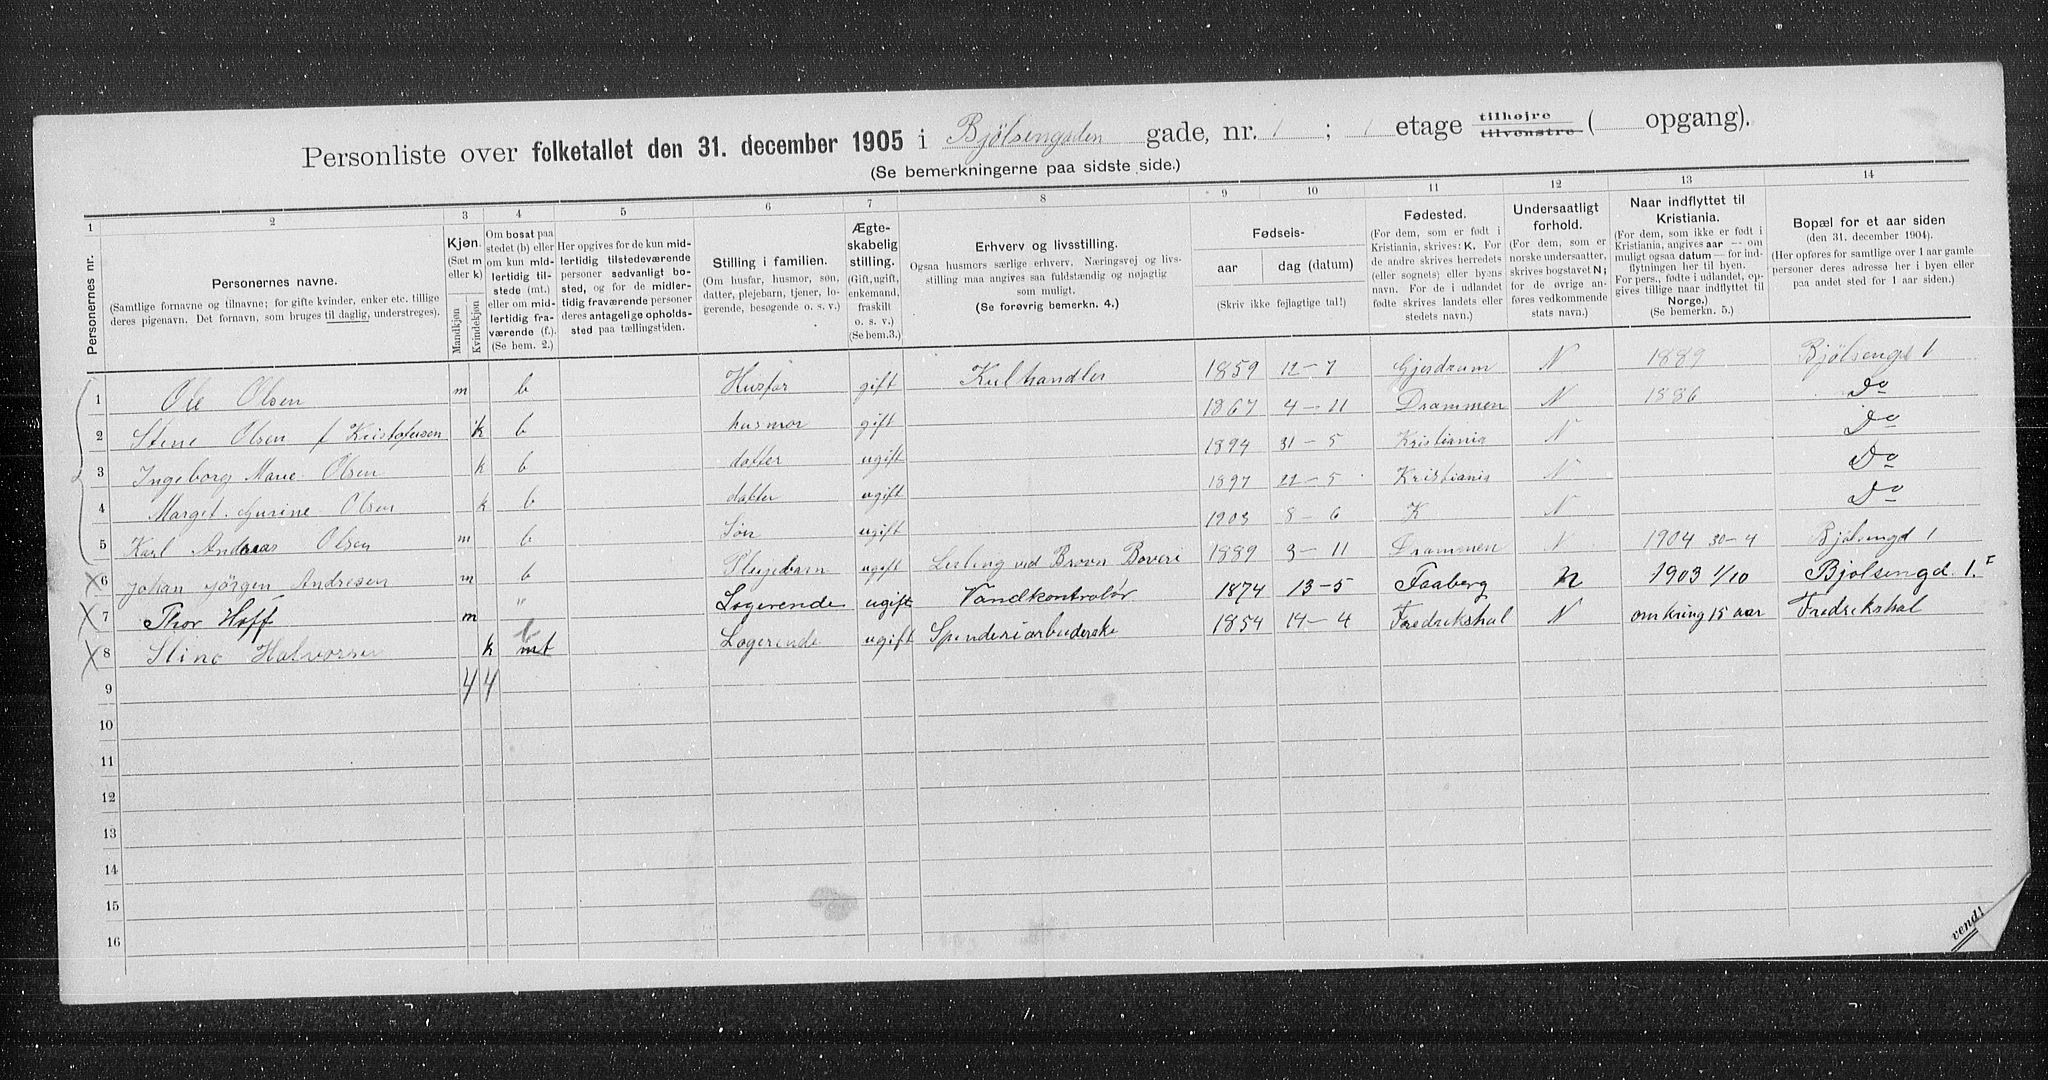 Personliste over folketallet den 31. december 1905 i Bjölsengaden gade, nr. 1 ; 1 etage tilhøjre tilvenstre ( opgang).
(Se bemerkningerne paa sidste side.)
1 2 3 4 5 6 7 8 9 10 11 12 13 14
Personernes nr.
Personernes navne.
(Samtlige fornavne og tilnavne; for gifte kvinder, enker etc. tillige deres pigenavn. Det fornavn, som bruges til daglig, understreges).
Kjøn.
(Sæt m eller k)
Mandkjøn Kvindekjøn
Om bosat paa stedet (b) eller om kun midlertidig tilstede (mt.) eller om midlertidig fraværende (f.) (Se bem. 2.)
Her opgives for de kun midlertidig tilstedeværende personer sedvanlig bosted, og for de midlertidig fraværende personer deres antagelige opholdssted paa tællingstiden.
Stilling i familien.
(Om husfar, husmor, søn, datter, plejebarn, tjener, logerende, besøgende o. s. v.)
Ægteskabelig stilling.
(Gift, ugift, enkemand, fraskilt o. s. v.)
(Se bem.3.)
Erhverv og livsstilling.
Ogsaa husmors særlige erhverv. Næringsvej og livsstilling maa angives saa fuldstændig og nøjagtig som muligt.
(Se forøvrig bemerkn. 4.)
Fødsels-
aar dag (datum)
(Skriv ikke fejlagtige tal!)
Fødested.
(For dem, som er født i Kristiania, skrives: K. For de andre skrives herredets (eller sognets) eller byens navn. For de i udlandet fødte skrives landets eller stedets navn.)
Undersaatligt forhold.
(For dem, som er norske undersaatter, skrives bogstavet N; for de øvrige anføres vedkommende stats navn.)
Naar indflyttet til Kristiania.
(For dem, som ikke er født i Kristiania, angives aar — om muligt ogsaa datum — for indflytningen her til byen. For pers., fødte i udlandet, opgives tillige naar indflyttet til Norge.)
(Se bemerkn. 5.)
Bopæl for et aar siden
(den 31. december 1904).
(Her opføres for samtlige over 1 aar gamle personer deres adresse her i byen eller paa andet sted for 1 aar siden.)
1 Ole Olsen m b Husfar gift Kulhandler 1859 12-7 Gjerdrum N 1889 Bjölsengd 1
2 Stene Olsen f Kristofersen k b husmor gift 1867 4-11 Drammen N 1886 Do
3 Ingeborg Marie Olsen k b datter ugift 1894 31-5 Kristiania N Do
4 Marget Gurine Olsen k b datter ugift 1897 22-5 Kristiania N Do
5 Karl Andreas Olsen m b Sön ugift 1903 8-6 K N Do
6 Johan Jörgen Andresen m b Plejebarn ugift Lerling ved Brovn Boveri 1889 3-11 Drammen N 1904 30-4 Bjölsengd 1
7 Thor Hoff m " Logerende ugift Vandkontrolör 1874 13-5 Faaberg N 1903 1/10 Bjølsengd. 1. I
8 Stine Halvorsen k b mt Logerende ugift Spinderiarbeiderske 1854 14-4 Fredrikshal N omkring 15 aar Fredrikshal
9 4 4
10
11
12
13
14
15
16
vend!